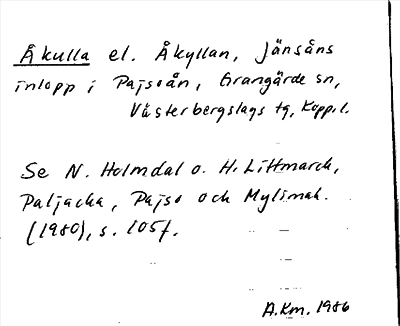 Åkulla el. Åkyllan, Jänsåns
inlopp i Pajsoån, Grangärde sn,
Västerbergslags tg, Kopp.l.
Se N. Holmdal o. H. Littmarck,
Paljacka, Pajso och Mylimak.
(1980), s. 105f.
A.Km. 1986